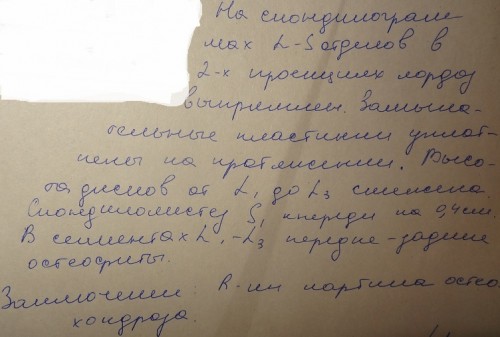 На спондилограм
мах L-S отделов в
2-х проекциях лордоз
выпрямлен. Замыка-
тельные пластинки уплот-
нены на протяжении. Высо-
та дисков от L₁ до L₃ снижена.
Спондилолистез S₁ кпереди на 0,4см
В сегментах L₁-L₃ передне-задние
остеофиты.
Заключение: R-ки картина остео
хондроза.